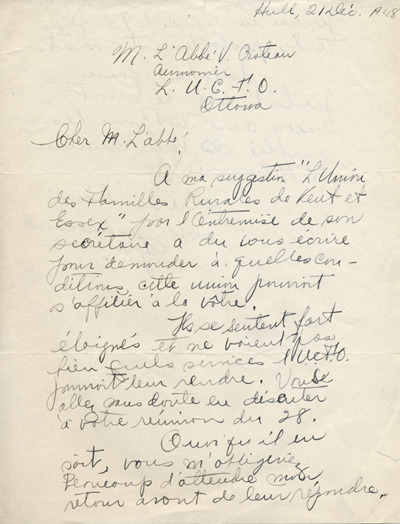 Hull, 21 Déc. 
M. L'Abbé V. Croteau
Aumonier
L. U. C. F. O.
Ottawa
Cher M. L'abbé;
A ma suggestion "L'Union
des Familles Rurales de Kent et
Essex" por l'entremise de son
secrétaire a du vous écrire
pour demander à quelles con-
ditions cette union pourrait
s'affilier à la vôtre.
Ils se sentent fort
éloignés et ne voient pas
bien quels services l'UCFO.
pourrait leur rendre. Vous
allez sans doute en discuter
à votre réunion du 28.
Quoi qu'il en
soit, vous m'obligeriez
beaucoup d'attendre mon
retour avant de leur répondre.